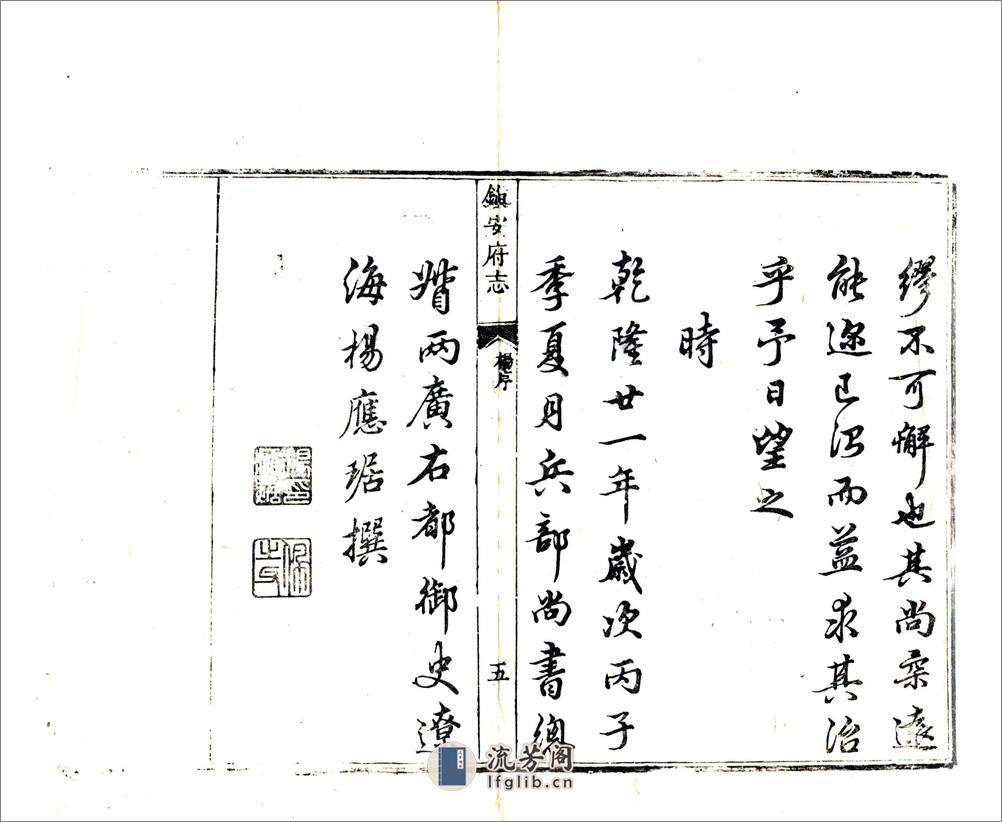 繆不可懈也其尚柔遠
能邇已治而益求其治
乎予日望之
時
乾隆廿一年歲次丙子
季夏月兵部尚書總
鎮安府志
楊序
五
督两廣右都御史遼
海楊應琚撰
流芳阁
lfglib.cn